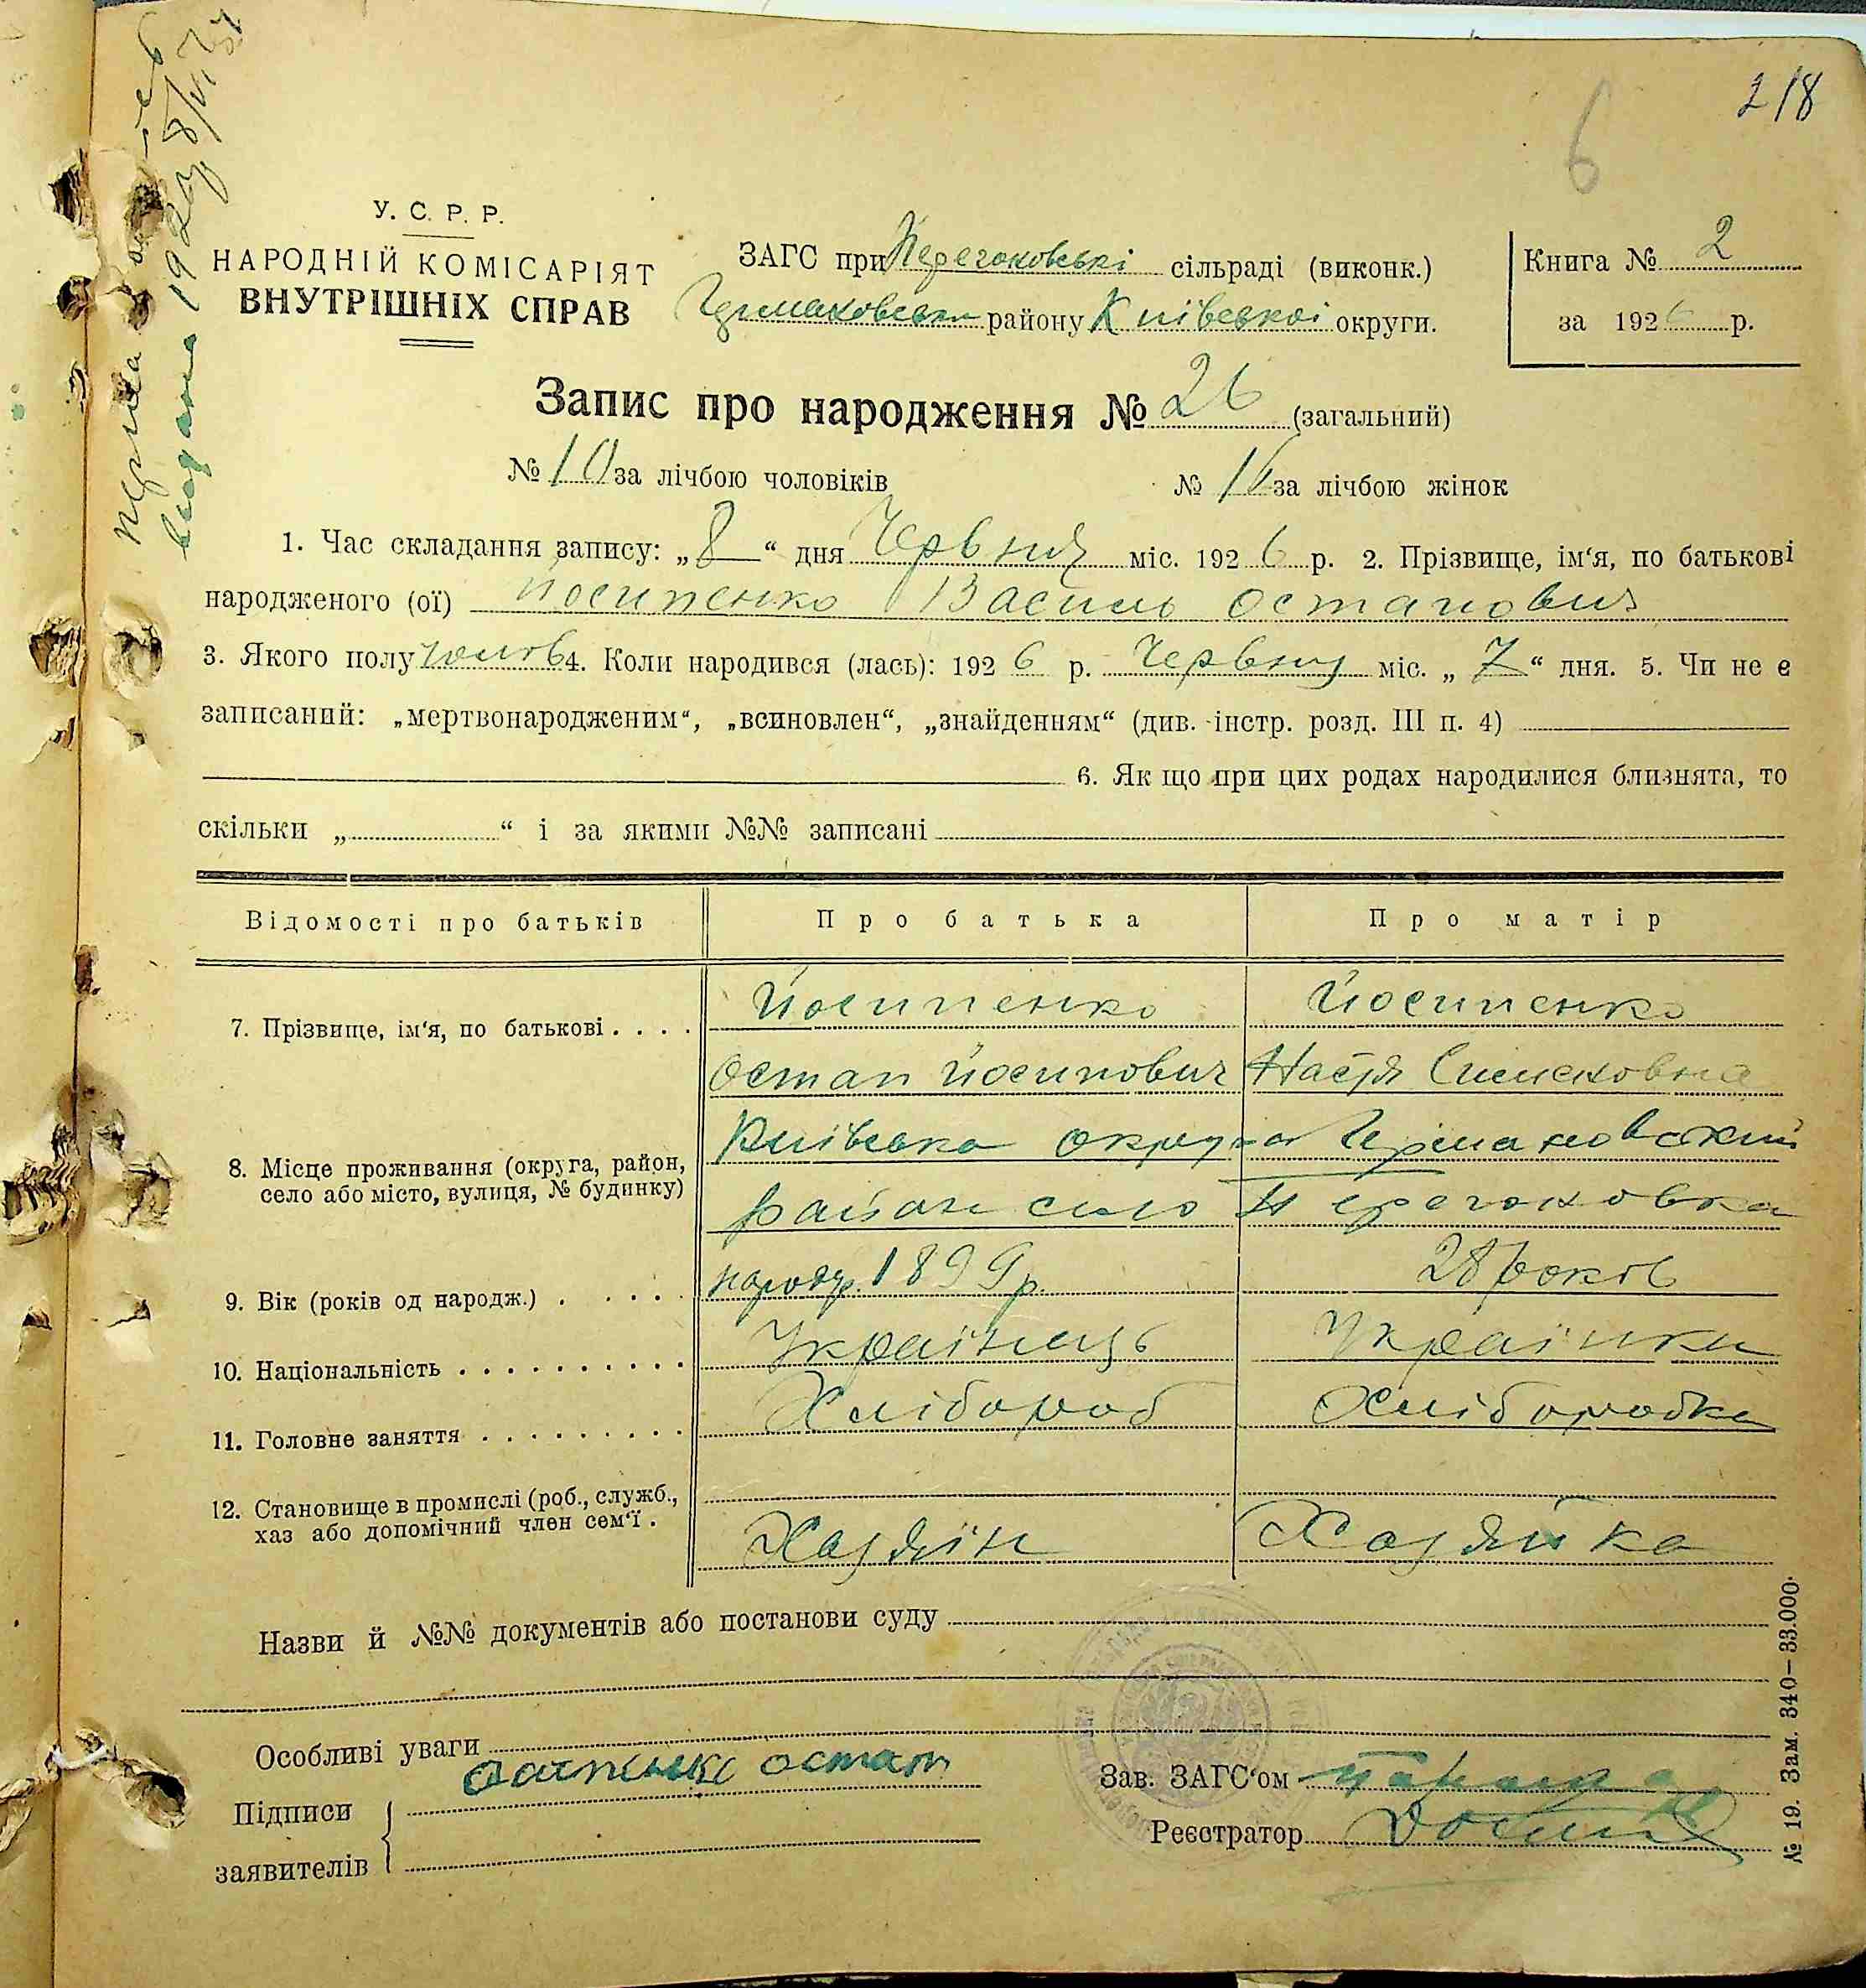 218
6
У. С. Р. Р.
НАРОДНІЙ КОМІСАРІЯТ
ВНУТРІШНІХ СПРАВ
ЗАГС при Перегоновські сільраді (виконк.)
району Київської округи.
Книга № 2
за 1926 р.
Запис про народження № 26 (загальний)
№ 10 за лічбою чоловіків № 16 за лічбою жінок
1. Час складання запису: „8“ дня Червня міс. 1926 р. 2. Прізвище, ім‘я, по батькові
народженого (ої) Йосипенко Василь Остапович
3. Якого полу чолов 4. Коли народився (лась): 1926 р. Червня міс. „7“ дня. 5. Чи не є
записаний: „мертвонародженим“, „всиновлен“, „знайденням“ (див. інстр. розд. III п. 4)
6. Як що при цих родах народилися близнята, то
скільки „ “ і за якими №№ записані
Відомості про батьків Про батька Про матір
7. Прізвище, ім‘я, по батькові . . . . Йосипенко Йосипенко
Остап Йосипович Настя Сименовна
Київська округа Германовский
8. Місце проживання (округа, район,
село або місто, вулиця, № будинку)
район село Перегоновка
9. Вік (років од народж.) . . . . . народ. 1899 р. 28 років
10. Національність . . . . . . . . . . Українець Українка
11. Головне заняття . . . . . . . . . Хлібороб Хліборобка
12. Становище в промислі (роб., служб.,
хаз або допомічний член сем‘ї .
Хазяїн Хазяйка
Назви й №№ документів або постанови суду
Особливі уваги
Підписи
заявителів
остап
Зав. ЗАГС‘ом
Реєстратор
№ 19. Зам. 340—33.000.
видана